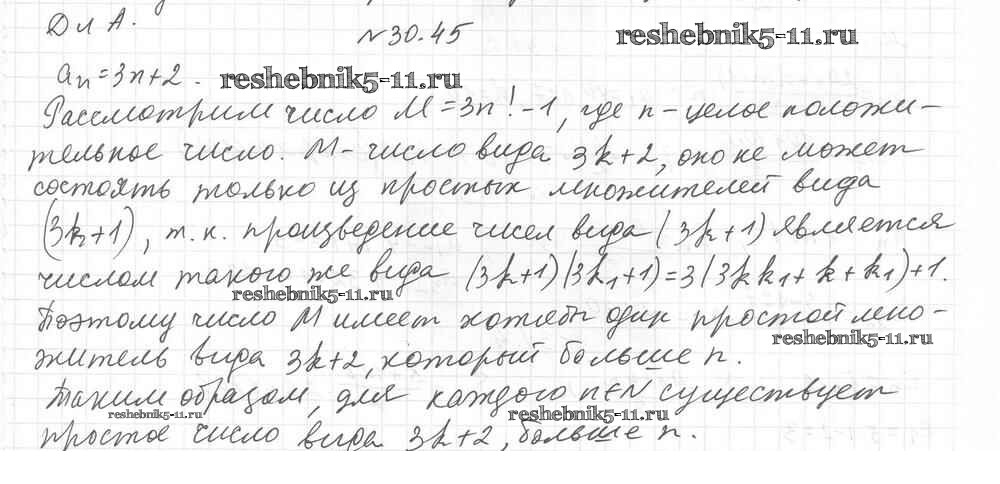 Для А.
№30.45
reshebnik5-11.ru
aₙ=3n+2. reshebnik5-11.ru
Рассмотрим число M=3n!-1, где n-целое положи-
тельное число. M-число вида 3k+2, оно не может
состоять только из простых множителей вида
(3k+1), т.к. произведение чисел вида (3k+1) является
числом такого же вида (3k+1)(3k₁+1)=3(3kk₁+k+k₁)+1.
reshebnik5-11.ru
Поэтому число M имеет хотябы один простой мно-
reshebnik5-11.ru
житель вида 3k+2, который больше n.
Таким образом, для каждого n∈N существует
reshebnik5-11.ru
reshebnik5-11.ru
простое число вида 3k+2, больше n.